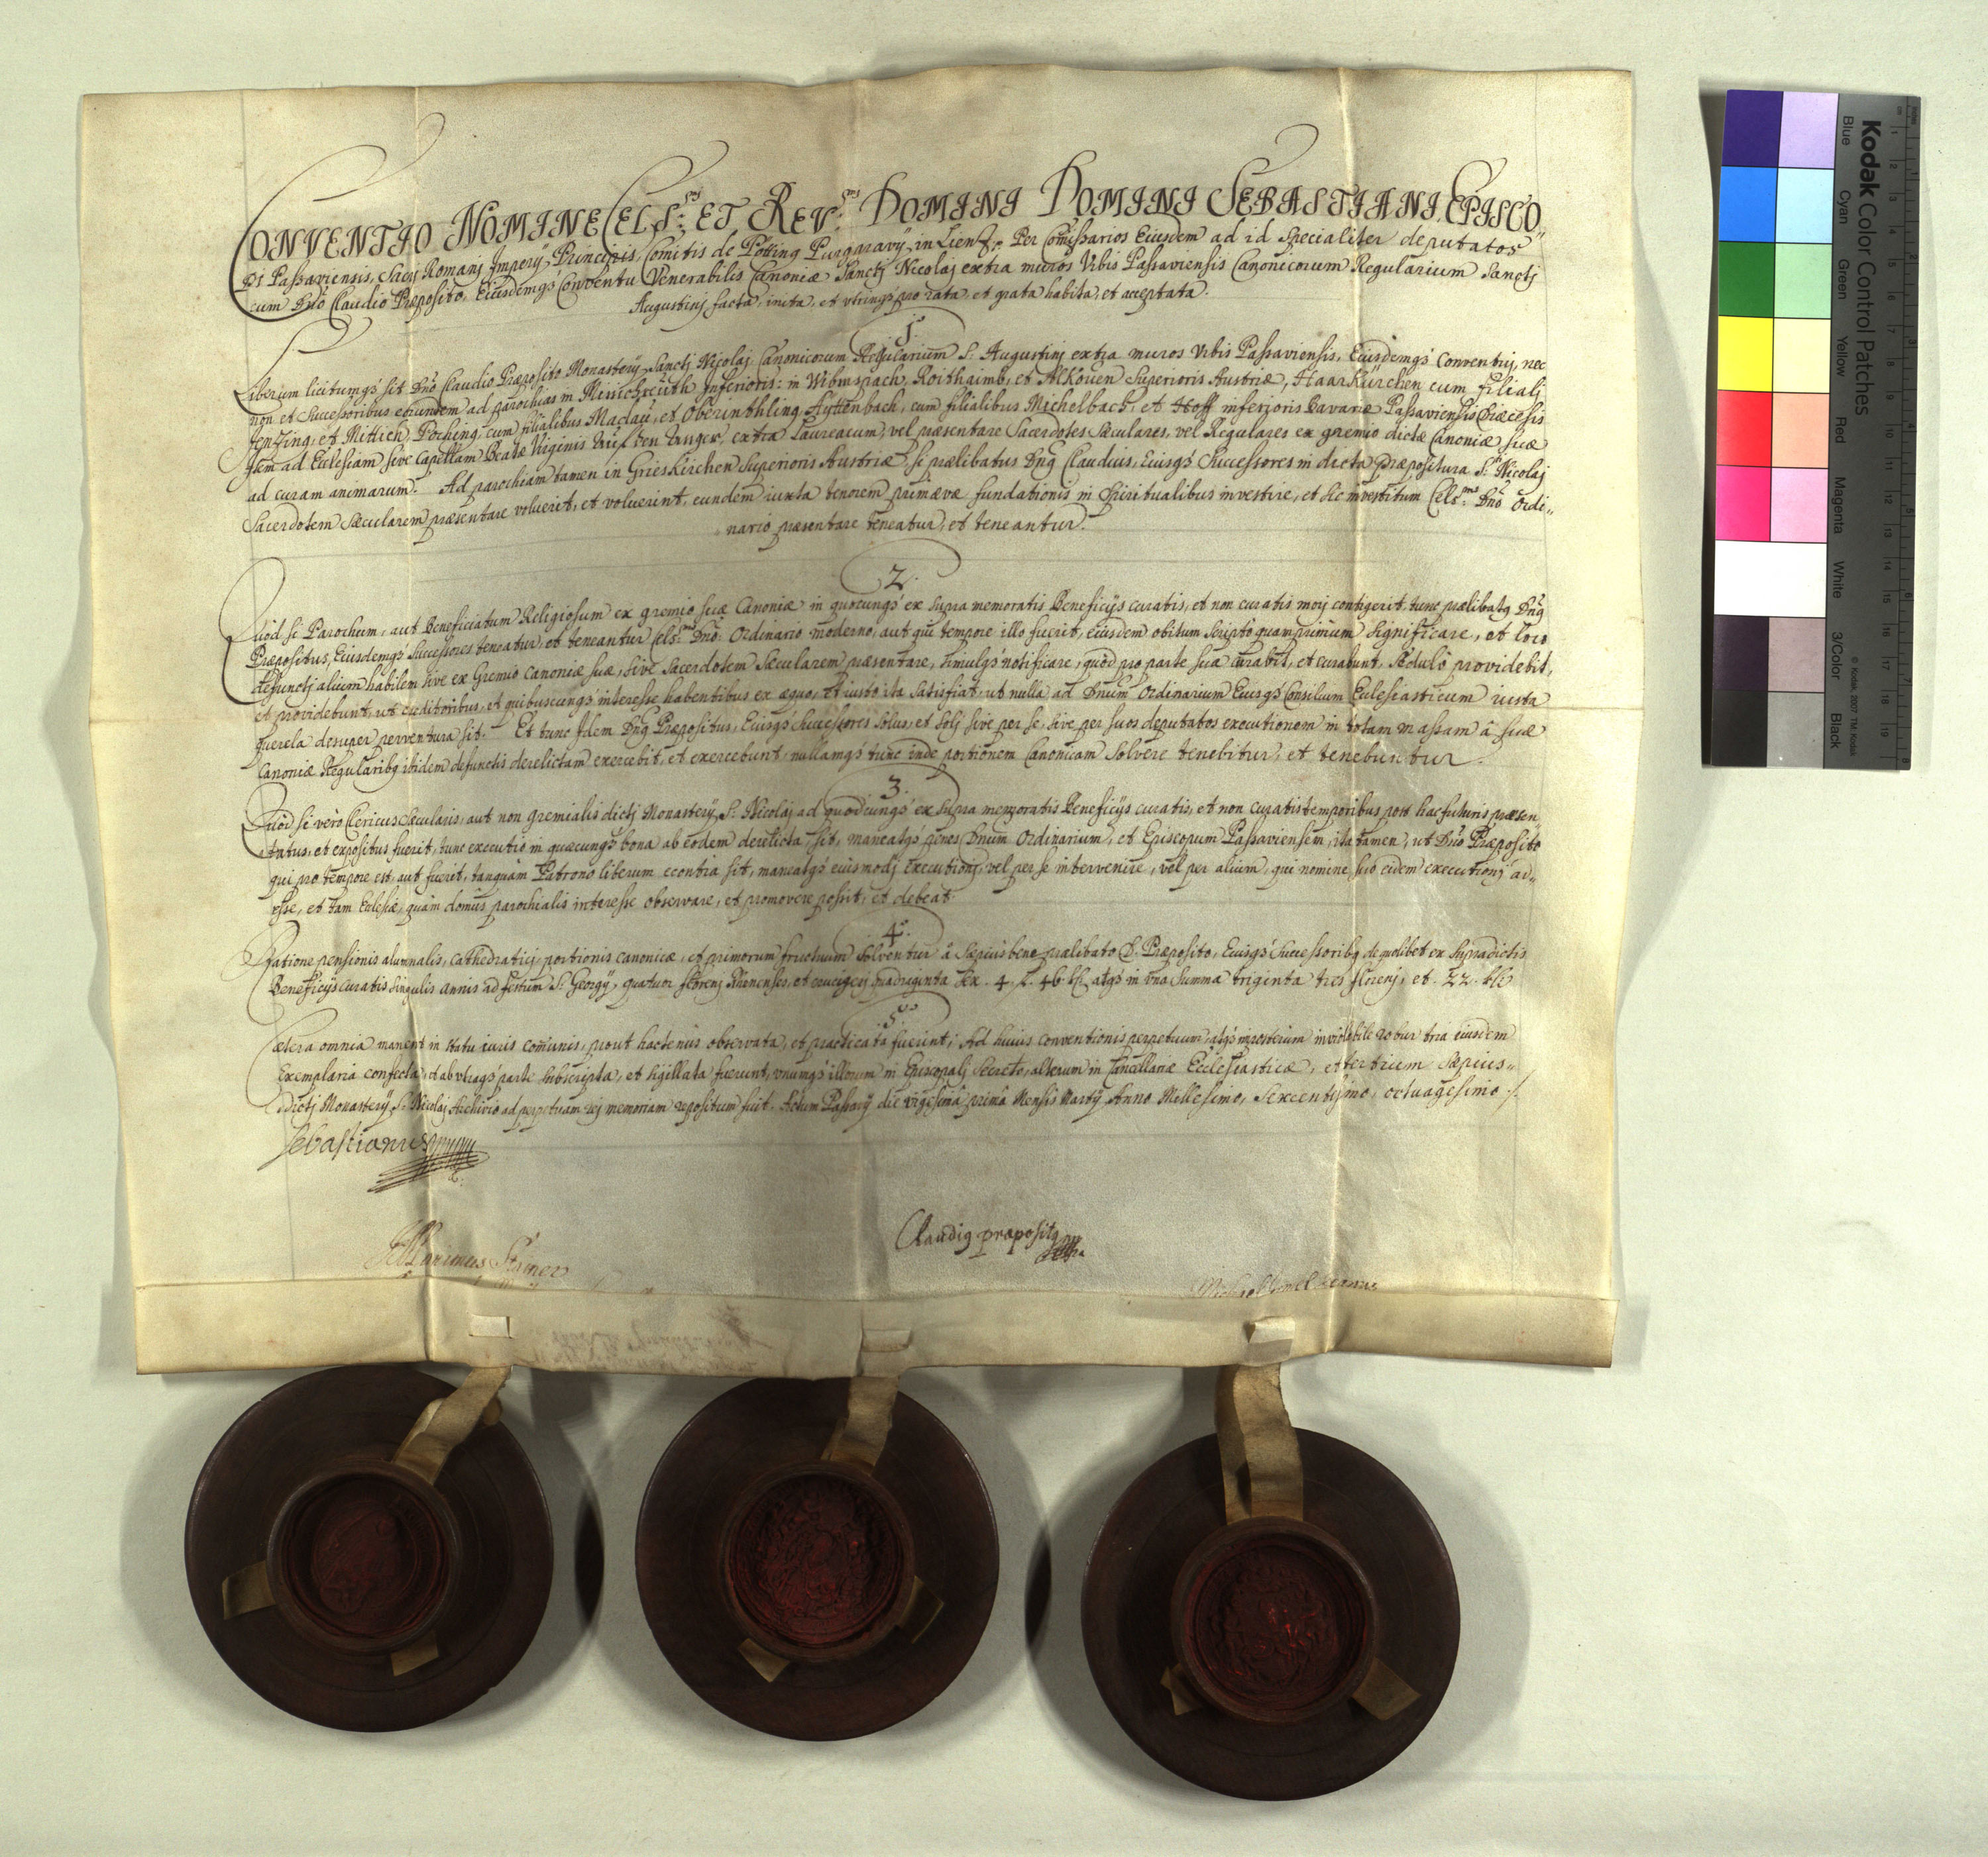 CONVENTIO NOMINE CELS:mi ET REV:mi DOMINI DOMINI SEBASTIANI, EPISCO„
PI Passaviensis, Sacrj Romanj Imperÿ Principis, Comitis de Pötting Purggravÿ in Lienz &. Per Comissarios Eiusdem ad id specialiter deputatos
cum Dnõ Claudio Præposito, Eiusdemq3 Conventu Venerabilis Canoniæ Sanctj Nicolaj extra muros Vrbis Passaviensis Canonicorum Regularium Sanctj
Augustinj facta, inita, et utrinq3 pro rata, et grata habita, et acceptata.
1º
Liberum licitumq3 sit Dnõ Claudio Præposito Monasterÿ Sanctj Nicolaj Canonicorum Regularium S. Augustinj extra muros Vrbis Passaviensis, Eiusdemq3 Conventuj, nec
non et Successoribus eorundem ad parochias in Missichreüth Inferioris: in Wibmspach, Roithaimb, et Alkouen Superioris Austriæ, Haarkürchen cum filialj
Jenzing, et Mittich, Poching, cum filialibus Maclau, et Oberinthling Ayttenbach, cum filialibus Michelbach, et Hoff inferioris Bavariæ Passaviensis Diæcesis
Item ad Ecclesiam sive Capellam Beatæ Virginis auf den Anger, extra Laureacum, vel præsentare Sacerdotes Sæculares, vel Regulares ex gremio dictæ Canoniæ suæ
ad curam animarum. Ad parochiam tamen in Grieskirchen Superioris Austriæ, si prælibatus Dnq Claudius, Eiusq3 Successores in dicta Præpositura S. Nicolaj
Sacerdotem Sæcularem præsentare voluerit, et voluerint, eundem iuxta tenorem primævæ fundationis in Spiritualibus investire, et sic investitum Cels:mo Dnõ Ordi„
nario præsentare teneatur, et teneantur.
2.
Quod si Parochum, aut Beneficiatum Religiosum ex gremio suæ Canoniæ in quocunq3 ex supra memoratis Beneficÿs curatis, et non curatis morj contigerit, tunc prælibatq Dnq
Præpositus, Eiusdemq3 Successores teneatur, et teneantur Cels:mo Dnõ: Ordinario moderno, aut qui tempore illo fuerit, eiusdem obitum scripto quamprimum significare, et loco
defunctj alium habilem sive ex Gremio Canoniæ suæ, sive Sacerdotem Sæcularem præsentare, simulq3 notificare, quod pro parte sua curabit, et curabunt, sedulò providebit,
et providebunt, ut creditoribus, et quibuscunq3 interesse habentibus ex æquo, et iusto ita satisfiat, ut nulla ad Dnum Ordinarium Eiusq3 Consilium Ecclesiasticum iusta
querela desuper perventura sit. Et tunc Idem Dnq Præpositus, Eiusq3 Successores solus, et solj sive per se, sive per suos deputatos executionem in totam massam â suæ
Canoniæ Regularibq ibidem defunctis derelictam exercebit, et exercebunt, nullamq3 tunc inde portionem Canonicam solvere tenebitur, et tenebuntur.
3.
Quod si verò Clericus Sæcularis, aut non gremialis dictj Monasterÿ S. Nicolaj ad quodcunq3 ex supra memoratis Beneficÿs curatis, et non curatis temporibus post hac futuris præsen„
tatus, et expositus fuerit, tunc executio in quæcunq3 bona ab eodem derelicta sit, maneatq3 penes Dnum Ordinarium, et Episcopum Passaviensem, ita tamen, ut Dnõ Præposito
qui pro tempore est, aut fuerit, tanquam Patrono liberum econtra sit, maneatq3 eiusmodj Executionj, vel per se intervenire, vel per alium, qui nomine suo eidem executionj ad„
esse, et tam Ecclesiæ, quàm domus parochialis interesse observare, et promovere possit, et debeat.
4º.
Ratione pensionis alumnalis, cathedraticj, portionis canonicæ, et primorum fructuum solventur â sæpius bene prælibato D. Præposito, Eiusq3 Successoribq de quolibet ex supradictis
Beneficÿs curatis singulis annis ad festum S. Georgÿ, quatuor florenj Rhenenses, et cruciferj quadraginta sex. 4. f. 46. kr atq3 in una Summa triginta tres florenj, et. 22. kr
5º
Cætera omnia manent in statu iuris comunis, prout hactenus observata, et practicata fuerint; Ad huius conventionis perpetuum, atq3 imposterum inviolabile robur tria eiusdem
Exemplaria confecta, et ab utraq3 parte subscripta, et sigillata fuerunt, unumq3 illorum in Episcopalj Secreto, alterum in Cancellariæ Ecclesiasticæ, et tertium sæpius„
dictj Monasterÿ S. Nicolaj Archivio ad perpetuam rej memoriam repositum fuit. Actum Passavÿ die vigesimâ primâ Mensis Martÿ Anno Millesimo, sexcentesimo, octuagesimo ./.
Sebastianus
Claudiq præpositq
Maximus Stainer
Kodak Color Control Patches
Blue Cyan Green Yellow Red Magenta White 3/Color Black
© Kodak, 2007 TM: Kodak